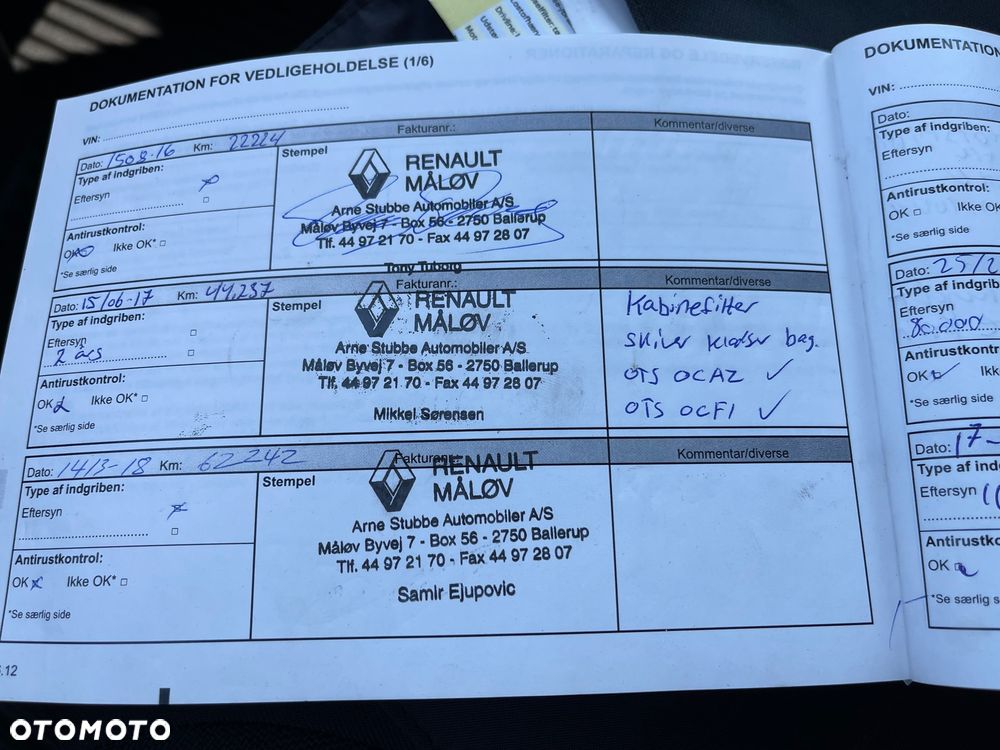 DOKUMENTATION FOR VEDLIGEHOLDELSE (1/6)
VIN:
Dato: 1508-16 Km: 22224 Fakturanr.: Kommentar/diverse
Type af indgriben:
Eftersyn
Stempel
RENAULT
MÅLØV
Arne Stubbe Automobiler A/S
Måløv Byvej 7 - Box 56 - 2750 Ballerup
Tlf. 44 97 21 70 - Fax 44 97 28 07
Tony Tuborg
Antirustkontrol:
OK Ikke OK*
*Se særlig side
Dato: 15/06-17 Km: 44,237 Fakturanr.: Kommentar/diverse
Type af indgriben:
Eftersyn
2 års
Stempel
RENAULT
MÅLØV
Arne Stubbe Automobiler A/S
Måløv Byvej 7 - Box 56 - 2750 Ballerup
Tlf. 44 97 21 70 - Fax 44 97 28 07
Mikkel Sørensen
Kabinefilter
skiver klodser bag.
OTS OCAZ ✓
OTS OCF1 ✓
Antirustkontrol:
OK Ikke OK*
*Se særlig side
Dato: 14/3-18 Km: 62242 Fakturanr.: Kommentar/diverse
Type af indgriben:
Eftersyn
Stempel
RENAULT
MÅLØV
Arne Stubbe Automobiler A/S
Måløv Byvej 7 - Box 56 - 2750 Ballerup
Tlf. 44 97 21 70 - Fax 44 97 28 07
Samir Ejupovic
Antirustkontrol:
OK Ikke OK*
*Se særlig side
DOKUMENTATION
VIN:
Dato:
Type af indgriben:
Eftersyn
Antirustkontrol:
OK Ikke OK
*Se særlig side
Dato: 25/2
Type af indgrib
Eftersyn
80.000
Antirustkontro
OK Ikk
*Se særlig side
Dato: 17-
Type af ind
Eftersyn
Antirustko
OK
*Se særlig s
OTOMOTO